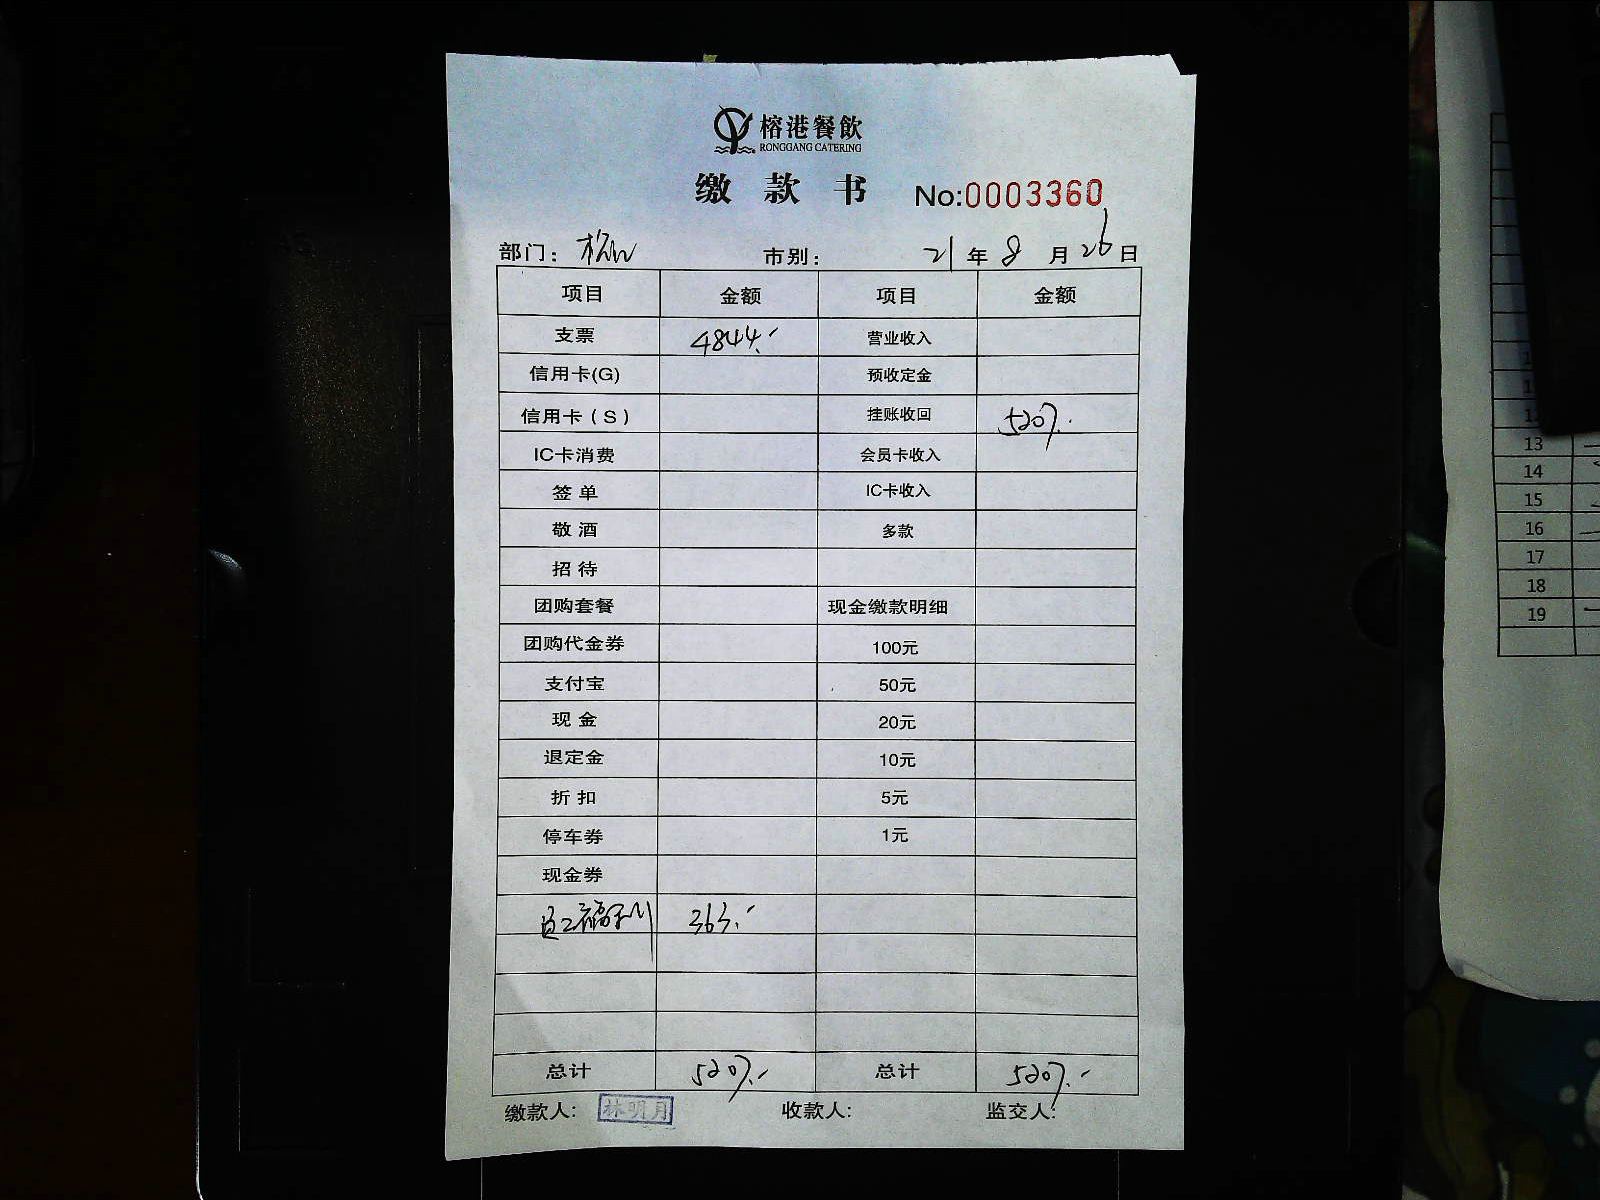 榕港餐飲
RONGGANG CATERING
缴款书 No:0003360
部门: 市别: 21年8月26日
项目 金额 项目 金额
支票 4844.- 营业收入
信用卡(G) 预收定金
信用卡(S) 挂账收回 5207.-
IC卡消费 会员卡收入
签单 IC卡收入
敬酒 多款
招待
团购套餐 现金缴款明细
团购代金券 100元
支付宝 50元
现金 20元
退定金 10元
折扣 5元
停车券 1元
现金券
员工福利 363.-
总计 5207.- 总计 5207.-
缴款人: 林明月 收款人: 监交人:
13
14
15
16
17
18
19